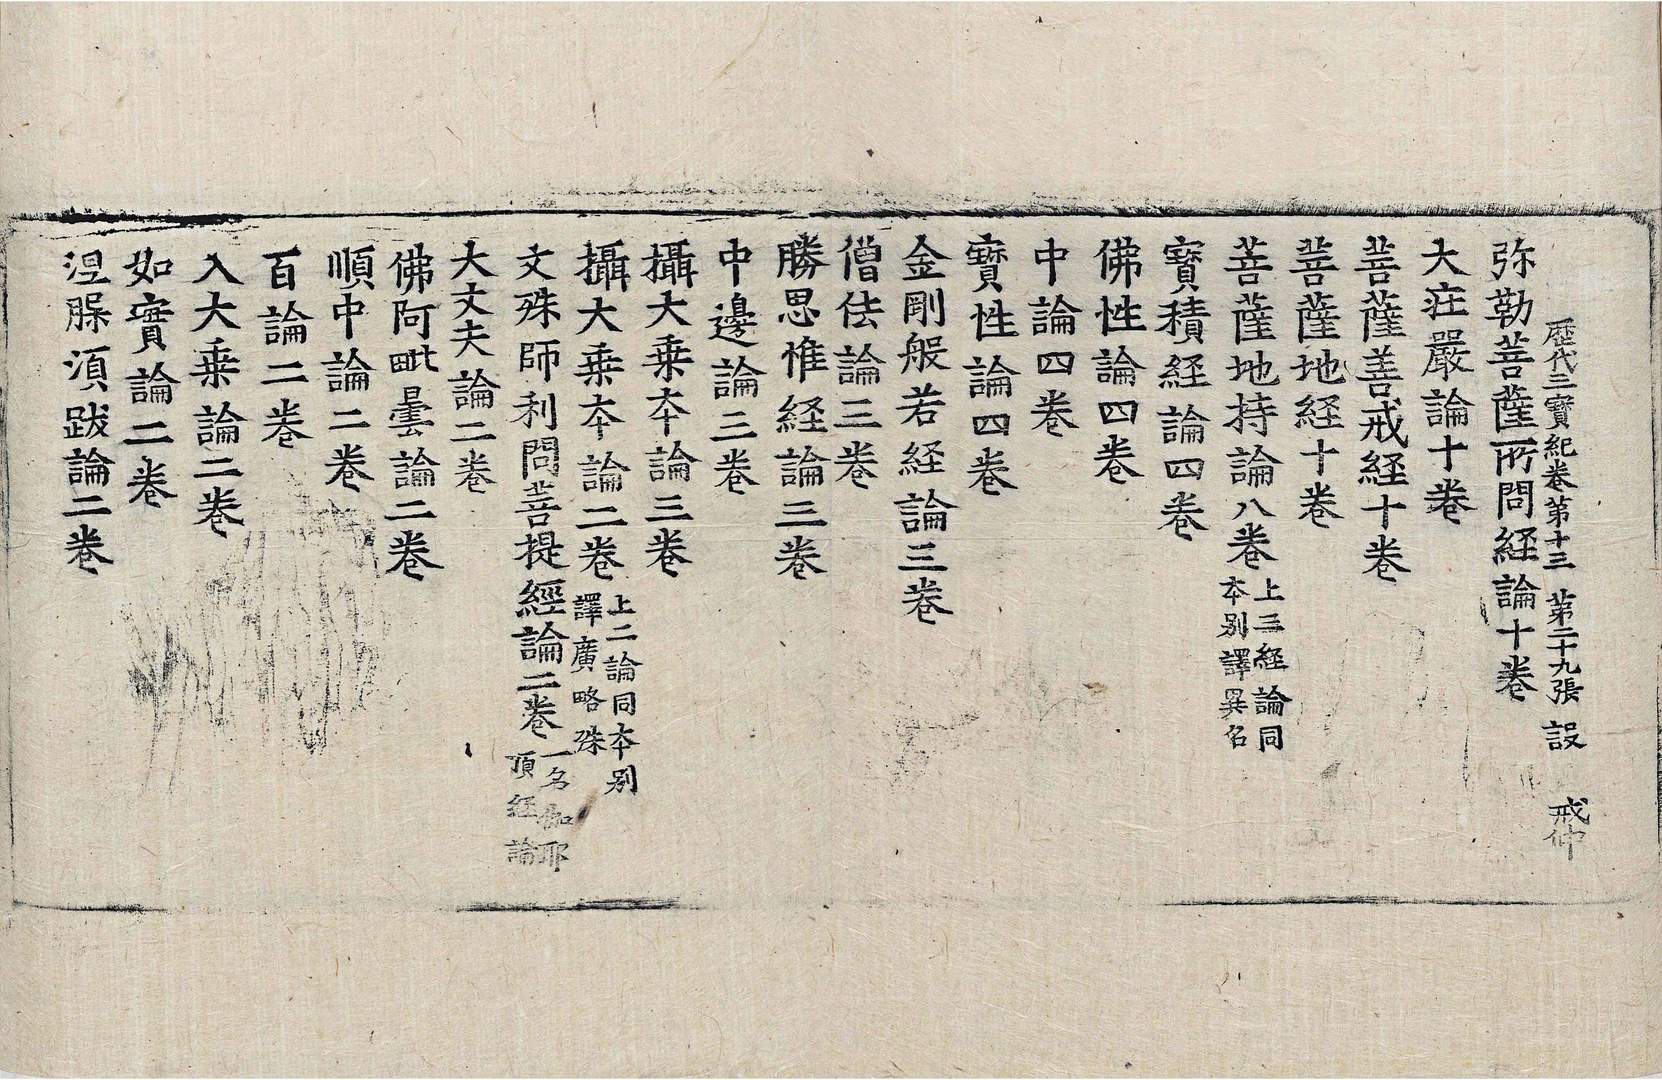 歷代三寶紀卷第十三 第二十九張 設 戒仲
弥勒菩薩所問経論十卷
大庄嚴論十卷
菩薩善戒経十卷
菩薩地経十卷
菩薩地持論八卷 上三経論同本別譯異名
寶積経論四卷
佛性論四卷
中論四卷
寶性論四卷
金剛般若経論三卷
僧佉論三卷
勝思惟経論三卷
中邊論三卷
攝大乗本論三卷
攝大乗本論二卷 上二論同本別譯廣略殊
文殊師利問菩提經論二卷 一名伽耶頂経論
大丈夫論二卷
佛阿毗曇論二卷
順中論二卷
百論二卷
入大乗論二卷
如實論二卷
涅腂湏跋論二卷